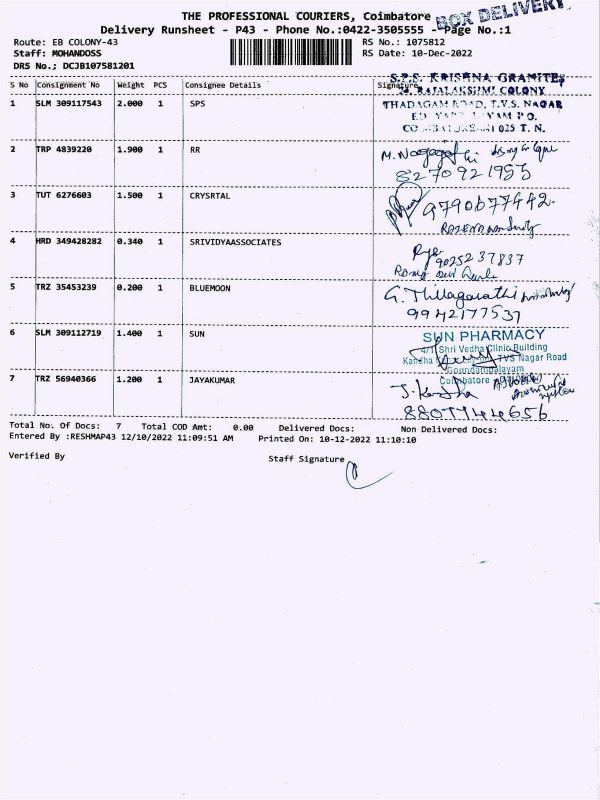 THE PROFESSIONAL COURIERS, Coimbatore
BOX DELIVERY
Delivery Runsheet - P43 - Phone No.:0422-3505555 - Page No.:1
Route: EB COLONY-43
RS No.: 1075812
Staff: MOHANDOSS
RS Date: 10-Dec-2022
DRS No.; DCJB107581201
S No Consignment No Weight PCS Consignee Details Signature
S.P.S. KRISHNA GRANITES
RAJALAKSHMI COLONY
1 SLM 309117543 2.000 1 SPS
THADAGAM ROAD, T.V.S. NAGAR
025 T. N.
2 TRP 4839220 1.900 1 RR
8270921955
3 TUT 6276603 1.500 1 CRYSRTAL
9790677442
4 HRD 349428282 0.340 1 SRIVIDYAASSOCIATES
9025237837
5 TRZ 35453239 0.200 1 BLUEMOON
G. Thillagarathi
9942177537
6 SLM 309112719 1.400 1 SUN
SUN PHARMACY
4/1 Shri Vedha Clinic Building
TVS Nagar Road
Goundampalayam
Coimbatore
7 TRZ 56940366 1.200 1 JAYAKUMAR
Total No. Of Docs: 7 Total COD Amt: 0.00 Delivered Docs: Non Delivered Docs:
Entered By :RESHMAP43 12/10/2022 11:09:51 AM Printed On: 10-12-2022 11:10:10
Verified By Staff Signature